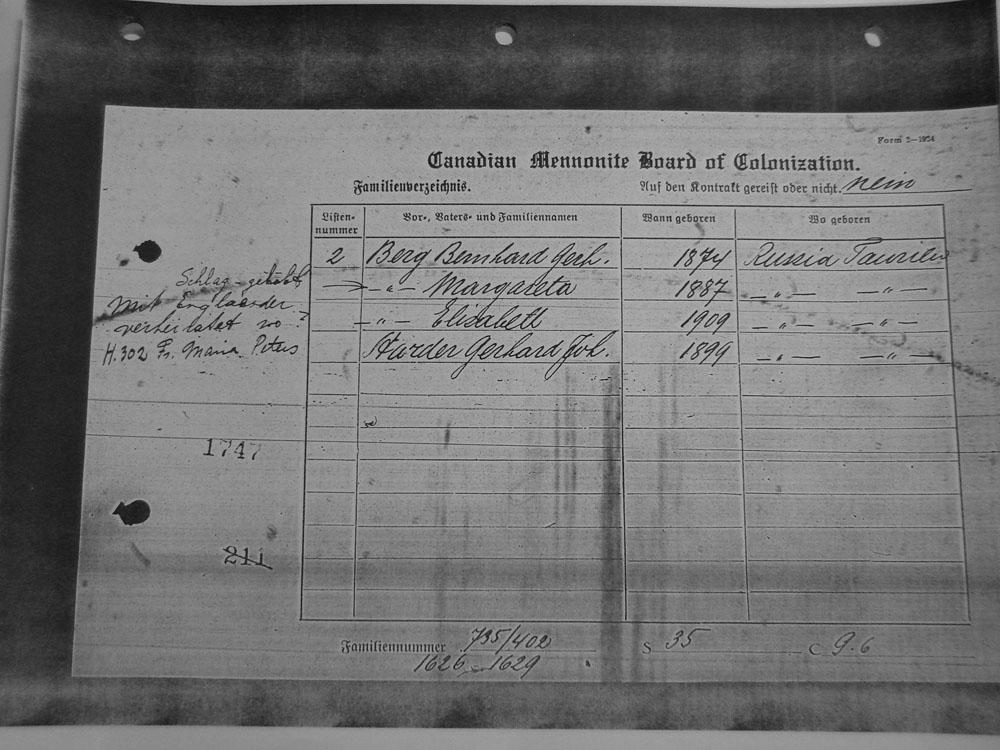 Form 2-1924
Canadian Mennonite Board of Colonization.
Familienverzeichnis. Auf den Kontrakt gereist oder nicht. nein
Listen-nummer Vor-, Vaters- und Familiennamen Wann geboren Wo geboren
2 Berg Bernhard Gerh. 1874 Russia
-"- Margareta 1887 -"- -"-
-"- Elisabeth 1909 -"- -"-
Harder Gerhard Joh. 1899 -"- -"-
Schlag gehabt
mit Englaender
verheiratet wo?
H.302 Fr. Maria Peters
1747
211
Familiennummer 735/402 S 35 C 9.6
1626-1629